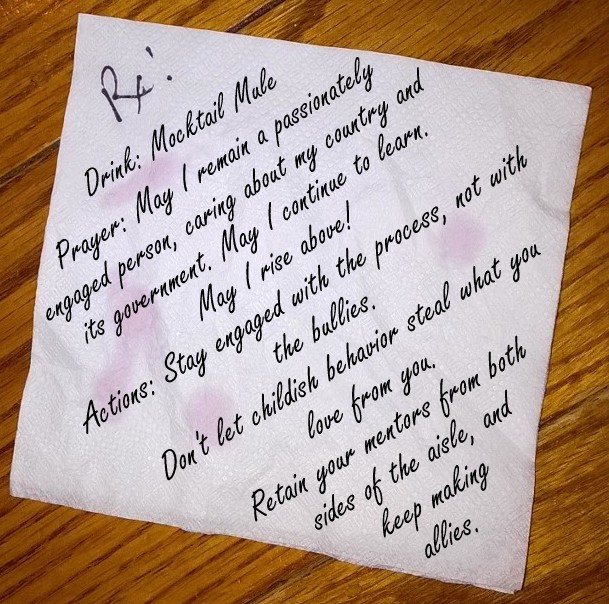 Rx!
Drink: Mocktail Mule
Prayer: May I remain a passionately
engaged person, caring about my country and
its government. May I continue to learn.
May I rise above!
Actions: Stay engaged with the process, not with
the bullies.
Don't let childish behavior steal what you
love from you.
Retain your mentors from both
sides of the aisle, and
keep making
allies.